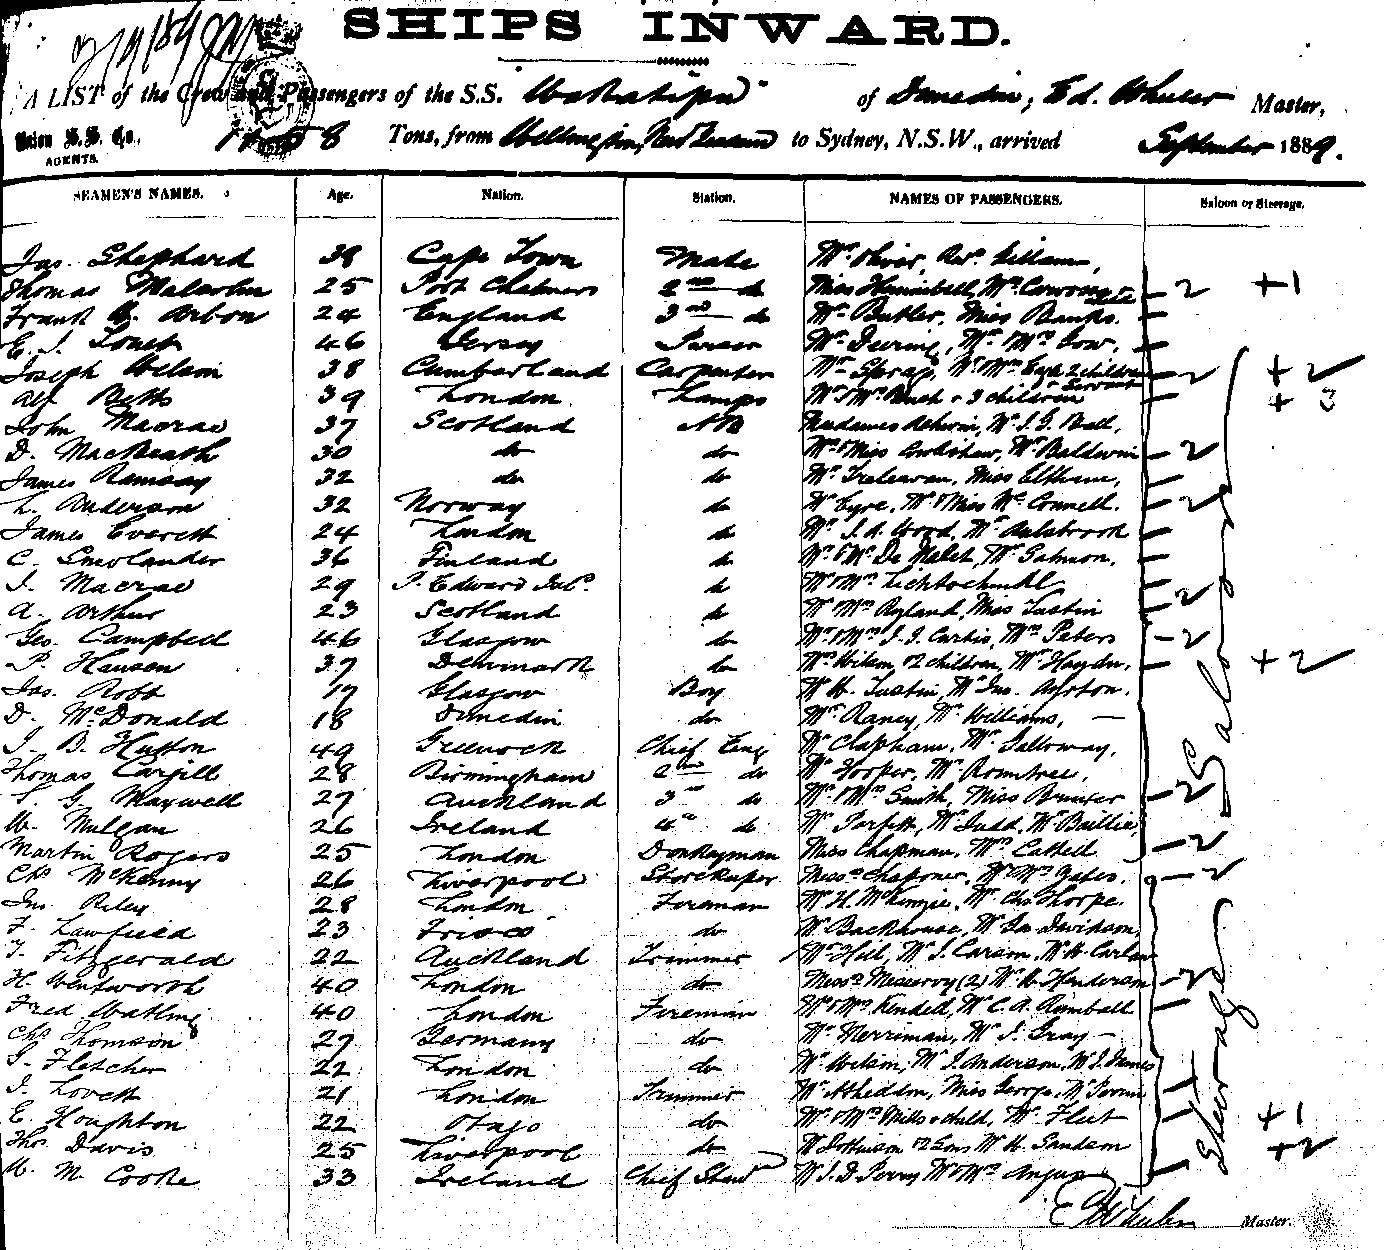 SHIPS INWARD.
A LIST of the Crew and Passengers of the S.S. Wakatipu of Dunedin, Ed. Wheeler Master,
Union S.S. Co., Tons, from Wellington, New Zealand to Sydney, N.S.W., arrived September 1889.
AGENTS.
SEAMEN'S NAMES. Age. Nation. Station. NAMES OF PASSENGERS. Saloon or Steerage.
Jas. Shephard 38 Cape Town Mate Mr Oliver, Revd. William,
Thomas Malcolm 25 Port Chalmers 2nd do Miss Hunnibell, Mr 2 +1
Frank B. Arbon 24 England 3rd do Mr Butler, Miss Banks.
E. J. 46 Jersey Purser Mr Deering, Mr Mrs Cow,
Joseph Wilson 38 Cumberland Carpenter Mr Spragg, Mr Mrs 2 children 2 + 2
Alf Betts 39 London Lamps Mr & Mrs & 3 children servant + 3
John Macrae 37 Scotland AB Mr J. G. Ball,
D. MacBeath 30 do do Miss Mr Baldwin 2
James Ramsay 32 do do Mr Treleavan, Miss Eltham,
L. Anderson 32 Norway do Mr Eyre, Mr & Miss McConnell. 2
James Everett 24 London do Mr J. A. Wood, Mr Aulsbrook
C. Smolander 36 Finland do Mr & Mrs De Mr Salmon,
J. Macrae 29 P. Edward Isld. do Mr & Mrs
A. Arthur 23 Scotland do Mr Mrs Ryland, Miss Tustin 2
Geo. Campbell 46 Glasgow do Mr & Mrs J. J. Curtis, Mrs Peters 2
P. Hansen 37 Denmark do Mrs Wilson & 2 children, Mr Haydn, + 2
Jas. Robb 17 Glasgow Boy Mr W. Tustin, Mr Jno. Ayrton.
D. McDonald 18 Dunedin do Mr Raney, Mr Williams,
J. B. Huston 49 Greenock Chief Eng Mr Clapham, Mr Galloway,
Thomas Cargill 28 Birmingham 2nd do Mr Hooper, Mr Romtree,
S. G. Maxwell 27 Auckland 3rd do Mr & Mrs Smith, Miss Brunter 2
W. Mulgan 26 Ireland 4th do Mr Parfitt, Mr Judd, Mr Baillie,
Martin Rogers 25 London Donkeyman Miss Chapman, Mrs Cattell 2
Chs McKenny 26 Liverpool Storekeeper Mr Mrs Yates. 2
Jno. Riley 28 London Foreman Mr H. McKenzie, Mr Chs Thorpe.
F. Lawfield 23 Frisco do Mr Backhouse, Mr Davidson,
T. Fitzgerald 22 Auckland Trimmer Mr Hill, Mr J. Carson, Mr H.
H. Wentworth 40 London do (2) Mr W. Henderson 2
Fred Watling 40 London Fireman Mr & Mrs Kendell, Mr C. A. Rumball
Chs Thomson 27 Germany do Mr Merriman, Mr J. Gray
G. Fletcher 22 London do Mr Wilson, Mr J. Anderson, Mr J. James
J. Lovett 21 London Trimmer Miss George, Mr
E. Houghton 22 Otago do Mr & Mrs Mills & child, Mr Fleet +1
Tho. Davis 25 Liverpool do & 2 Sons Mr H. Sandson +2
W. M. Cooke 33 Ireland Chief Stewd Mr J. D. Perry Mr & Mrs Angus
Saloon
Steerage
E. Wheeler Master.